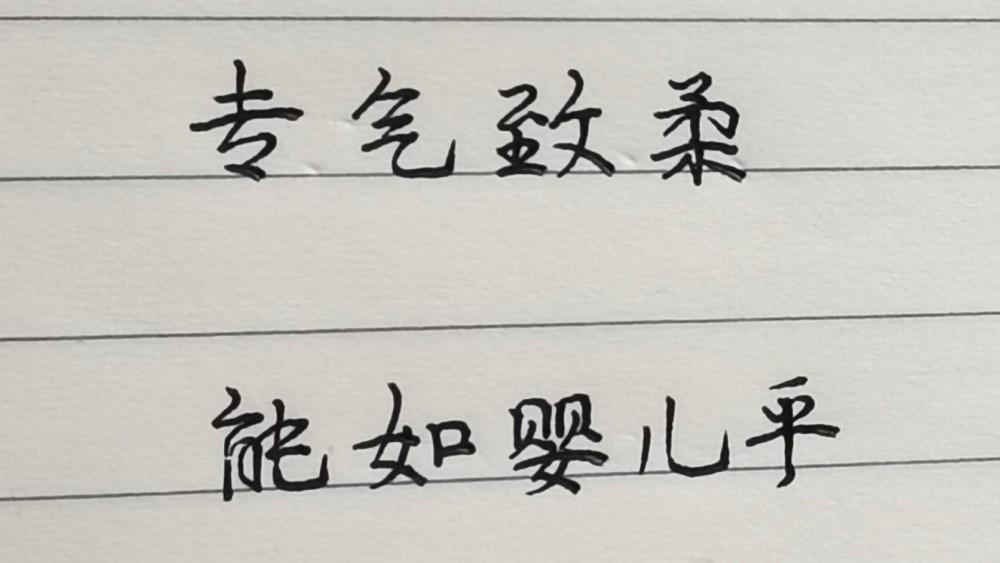 专气致柔
能如婴儿乎